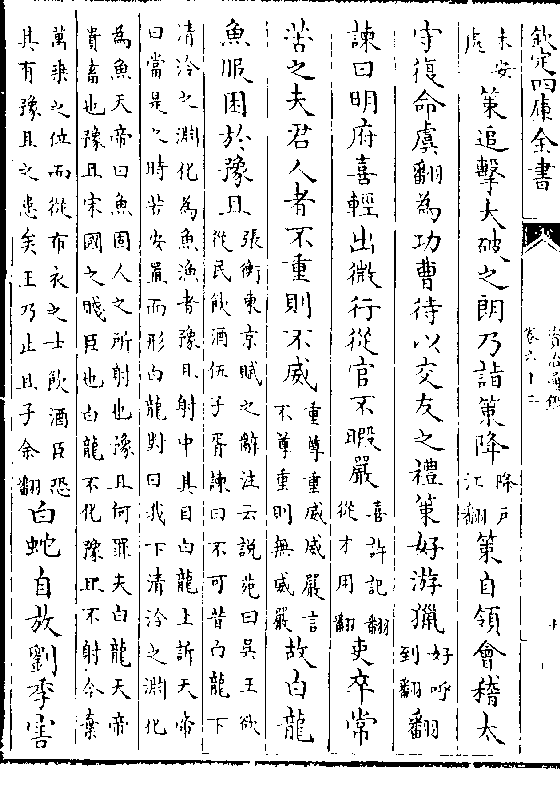 欽定四庫全書
資治通鑑
未安
處
策追擊大破之朗乃詣策降
降户
江翻
策自領會稽太
守復命虞翻為功曹待以交友之禮策好游獵
好呼
到翻
翻
諫曰明府喜輕出微行從官不暇嚴
喜許記翻
從才用翻
吏卒常
苦之夫君人者不重則不威
重尊重威威嚴言
不尊重則無威嚴
故白龍
魚服困於豫且
張衡東京賦之辭注云說苑曰吳王欲
從民飲酒伍子胥諫曰不可昔白龍下
清泠之淵化為魚漁者豫且射中其目白龍上訴天帝
曰當是之時若安置而形白龍對曰我下清泠之淵化
為魚天帝曰魚固人之所射也豫且何罪夫白龍天帝
貴畜也豫且宋國之賤臣也白龍不化豫且不射今棄
萬乗之位而從布衣之士飲酒臣恐
其有豫且之患矣王乃止且子余翻
白蛇自放劉季害